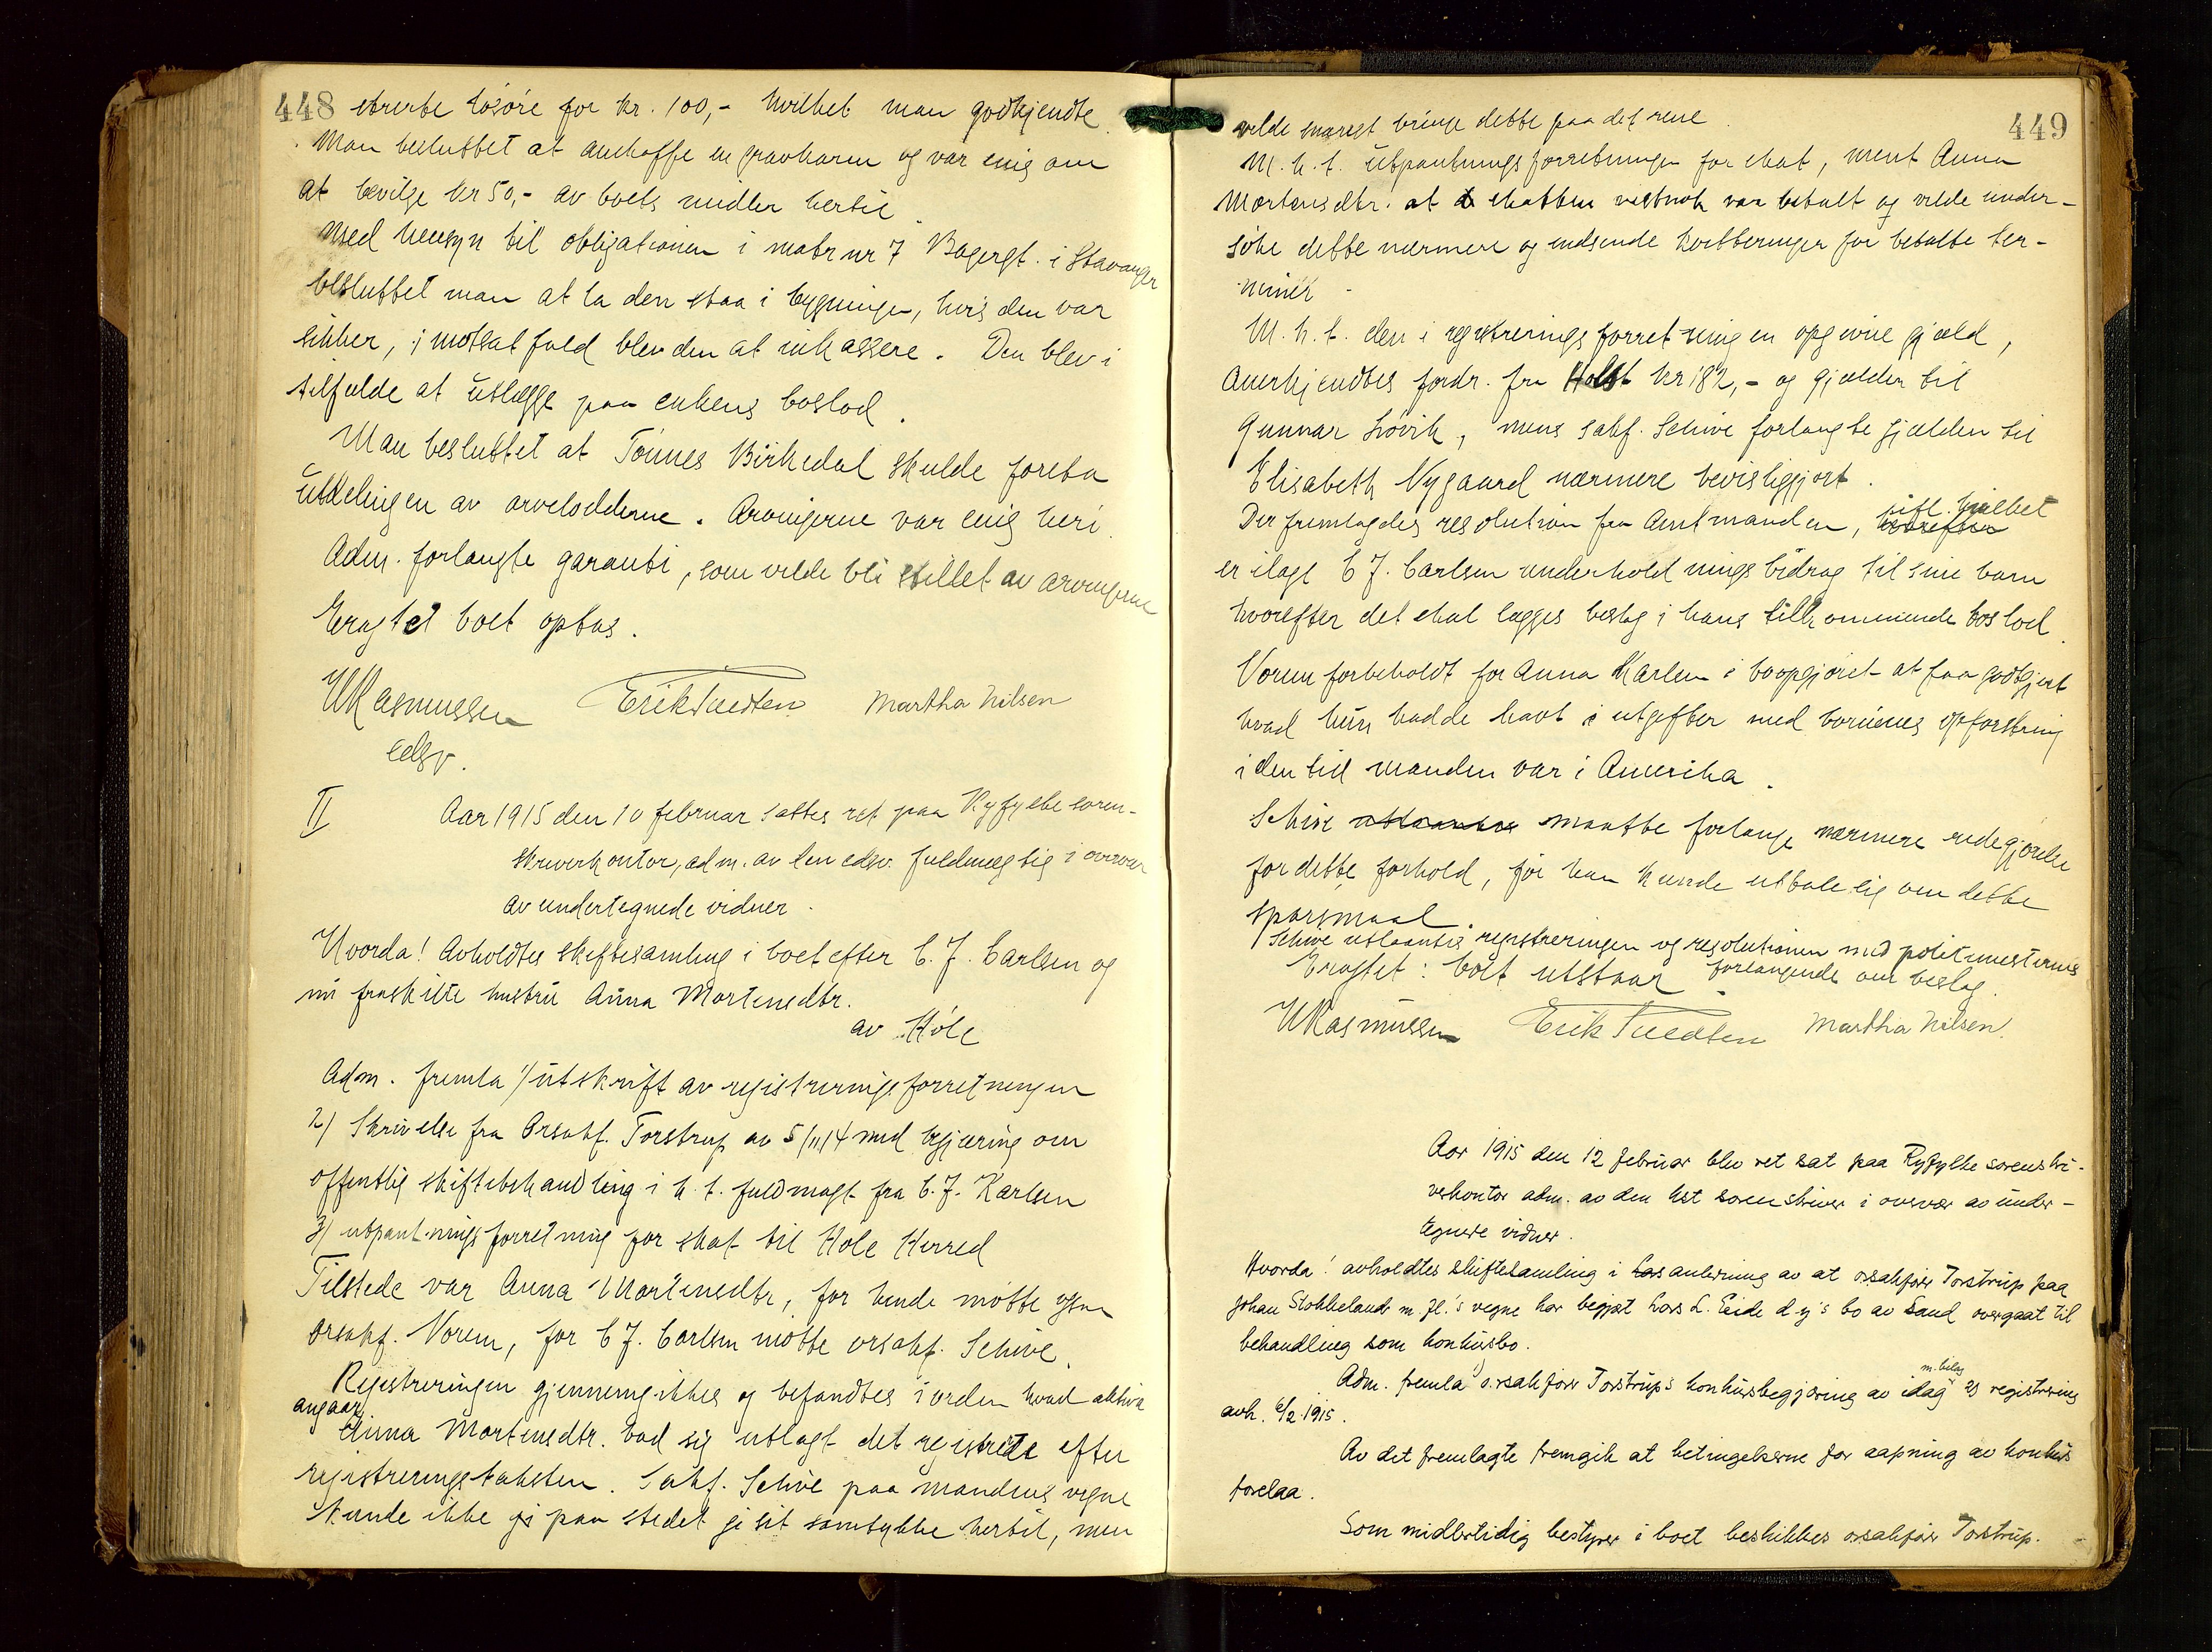 448 løsøre for kr. 100,- hvilket man godkjendte.
Man besluttet at anskaffe en gravkarm og var enig om
at bevilge kr 50,- av boets midler hertil.
Med hensyn til obligationen i matr nr 7 Bagergt. i Stavanger
besluttet man at la den staa i bygningen, hvis den var
sikker, i motsat fald blev den at inkassere. Den blev i
tilfælde at utlægge paa enkens boslod.
Man besluttet at Tønnes Birkedal skulde foreta
utdelingen av arvelodderne. Arvingerne var enig heri.
Adm. forlangte garanti, som vilde bli stillet av arvingerne
Eragtet boet optas.
Rasmussen Erik Tuedten Martha Nilsen
edsv.
II Aar 1915 den 10 februar sattes ret paa Ryfylke soren-
skriverkontor, adm. av den edsv. fuldmægtig i overvær
av undertegnede vidner.
Hvorda! Avholdtes skiftesamling i boet efter C. J. Carlsen og
nu fraskilte hustru Anna Mortensdtr.
av Høle
Adm. fremla 1/ utskrift av registreringsforretningen
2/ Skrivelse fra Orsakf. Torstrup av 5/11/14 med begjæring om
offentlig skiftebehandling i h. t. fuldmagt fra C. J. Karlsen
3/ utpantningsforretning for skat til Høle Herred
Tilstede var Anna Mortensdtr, for hende møtte ogsaa
orsakf. Vorum, for C J. Carlsen møtte orsakf. Schive.
Registreringen gjennemgikkes og befandtes i orden hvad aktiva
angaar
Anna Mortensdtr. bad sig utlagt det registrerte efter
registreringstaksten. Sakf. Schive paa mandens vegne
kunde ikke gi paa stedet gi sit samtykke hertil, men
449
vilde snarest bringe dette paa det rene.
M. h. t. utpantningsforretningen for skat, mente Anna
Mortensdtr. at skatten vistnok var betalt og vilde under-
søke dette nærmere og indsende kvitteringer for betalte ter-
miner.
M. h. t. den i registreringsforretningen opgivne gjæld,
Anerkjendtes fordr. fra Holst kr 182,- og gjælden til
Gunnar Løvik, mens sakf. Schive forlangte gjælden til
Elisabeth Nygaard nærmere bevisliggjort.
Der fremlagdes resolution fra Amtmanden, hvorefter ifl. hvilket
er ilagt C J. Carlsen underholdningsbidrag til sine barn
hvorefter det skal lægges beslag i hans tilkommende boslod.
Vorum forbeholdt for Anna Karlsen i boopgjøret at faa godtgjort
hvad hun hadde havt i utgifter med barnenes opfostring
i den tid manden var i Amerika.
Schive maatte forlange nærmere redegjørelse
for dette forhold, før han kunde uttale sig om dette
spørsmaal.
Schive utlaantes registreringen og resolutionen med politimesterens
forlangende om beslag.
Eragtet: boet utstaar.
Rasmussen Erik Tuedten Martha Nilsen.
Aar 1915 den 12 februar blev ret sat paa Ryfylke sorenskri-
verkontor adm. av den kst sorenskriver i overvær av under-
tegnede vidner.
Hvorda! avholdtes skiftesamling i anledning av at orsakfører Torstrup paa
Johan Stokkeland m. fl.'s vegne har begjært Lars L. Eide d. y's bo av Sand overgaat til
behandling som konkursbo.
Adm. fremla 1) orsakfører Torstrup's konkursbegjæring av idag m. bilag 2) registrering
avh. 6/2 1915.
Av det fremlagte fremgik at betingelserne for aapning av konkurs
forelaa.
Som midlertidig bestyrer i boet beskikkes orsakfører Torstrup.